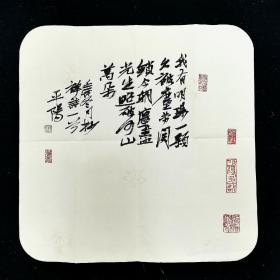 我有明珠一颗
久被尘劳关
锁今朝尘尽
光生照破河山
万朵
禅诗一首
平阳